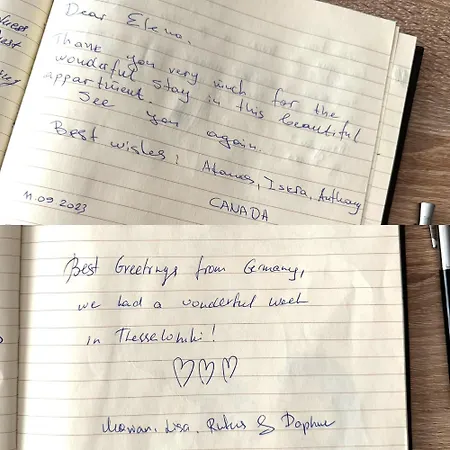 Dear Elena,
Thank you very much for the
wonderful stay in this beautiful
appartment.
See you again.
Best wishes, Atanas, Iskra, Anthony
CANADA
11.09.2023
Best Greetings from Germany,
we had a wonderful week
in Thesseloniki!
♡♡♡
Marian, Lisa, Rufus & Daphne